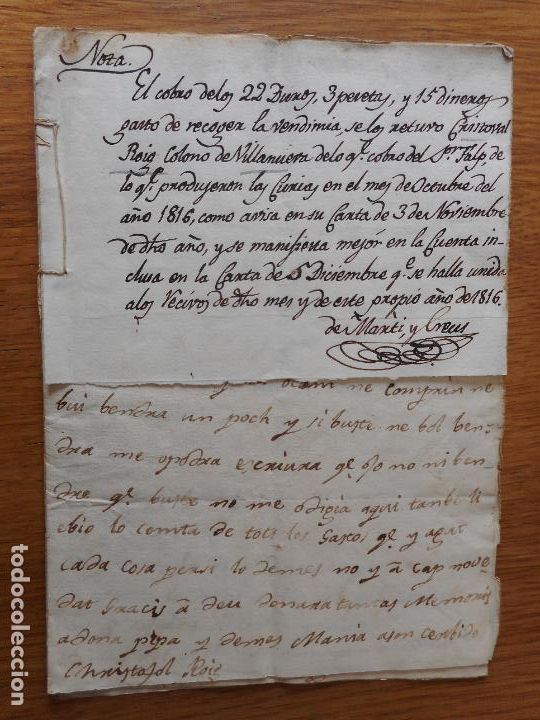 Nota.
El cobro delos 22 Duros, 3 pesetas, y 15 dineros
gasto de recoger la vendimia, se los retuvo Cristoval
Roig Colono de Villanueva delo q.e cobro del S.or Falp, de
lo q.e produjeron las Curias en el mes de Octubre del
año 1816, como avisa en su Carta de 3 de Noviembre
de dho año, y se manifiesta mejór en la Cuenta in-
clusa en la Carta de 6 Diciembre q.e se halla unida
alos Recivos de dho mes y de este propio año de 1816.
de Marti, y Creus
ne comprin ne
bui bendra un poch y si buste ne bol ben-
dra me o podra escriura q.e jo no ni ben-
dre q.e buste no me o digia aqui tanbe li
ebio lo comta de tots los Gastos q.e y agut
cada cosa persi lo demes no y á cap nove
dat Gracis á deu donara tantas Memoris
a dona pepa y demes Mania a son cerbido
Christofol Roig
todocoleccion